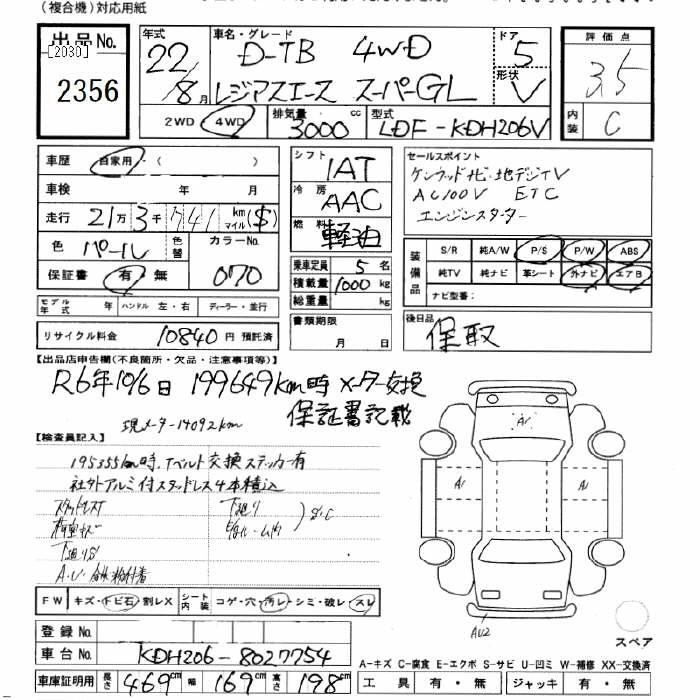 (複合機)対応用紙
出品No.
[2030]
2356
年式
22/8月
車名・グレード
D-TB 4WD
レジアスエース スーパーGL
ドア
5
形状
V
評価点
3.5
内装
C
2WD 4WD
排気量
3000cc
型式
LDF-KDH206V
車歴 自家用・( )
車検 年 月
走行 21万3千741 km マイル ($)
色 パール 色替
カラーNo.
070
保証書 有・無
モデル年式 年 ハンドル 左・右 ディーラー・並行
リサイクル料金 10840円 預託済
シフト
IAT
冷房
AAC
燃料
軽油
乗車定員 5名
積載量 1000kg
総重量 kg
書類期限
月 日
セールスポイント
ケンウッドナビ・地デジTV
AC100V ETC
エンジンスターター
装備品
S/R 純A/W P/S P/W ABS
純TV 純ナビ 革シート 外ナビ エアB
ナビ型番:
後日品
保取
【出品店申告欄(不良箇所・欠品・注意事項等)】
R6年10/6日 199649km時 メーター交換
保証書記載
現メーター14092km
【検査員記入】
195355km時、Tベルト交換ステッカー有
社外アルミ付スタッドレス4本積込
下廻り
S・C
FW キズ・トビ石・割レX シート内装 コゲ・穴・汚レ・シミ・破レ・スレ
登録No.
車台No. KDH206-8027754
車庫証明用 長さ 469cm 幅 169cm 高さ 198cm
A1
A1
A1
AU2
スペア
A-キズ C-腐食 E-エクボ S-サビ U-凹ミ W-補修 XX-交換済
工具 有・無 ジャッキ 有・無